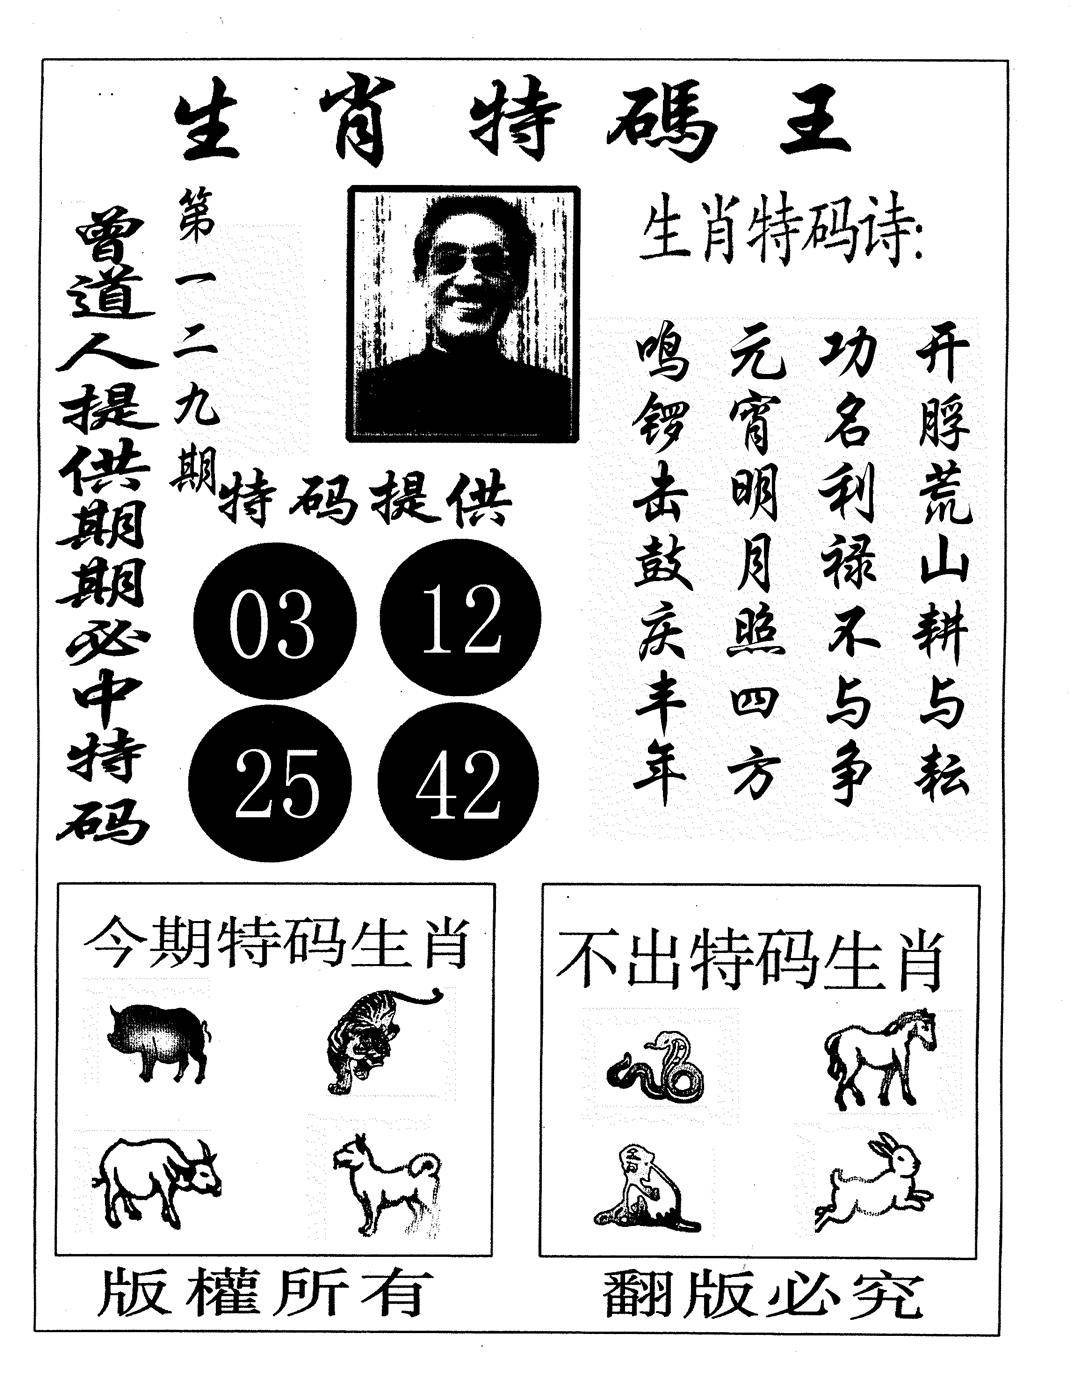 生肖特碼王
曾道人提供期期必中特码
第一二九期
特码提供
03 12
25 42
生肖特码诗:
开脬荒山耕与耘
功名利禄不与争
元宵明月照四方
鸣锣击鼓庆丰年
今期特码生肖
不出特码生肖
版權所有
翻版必究